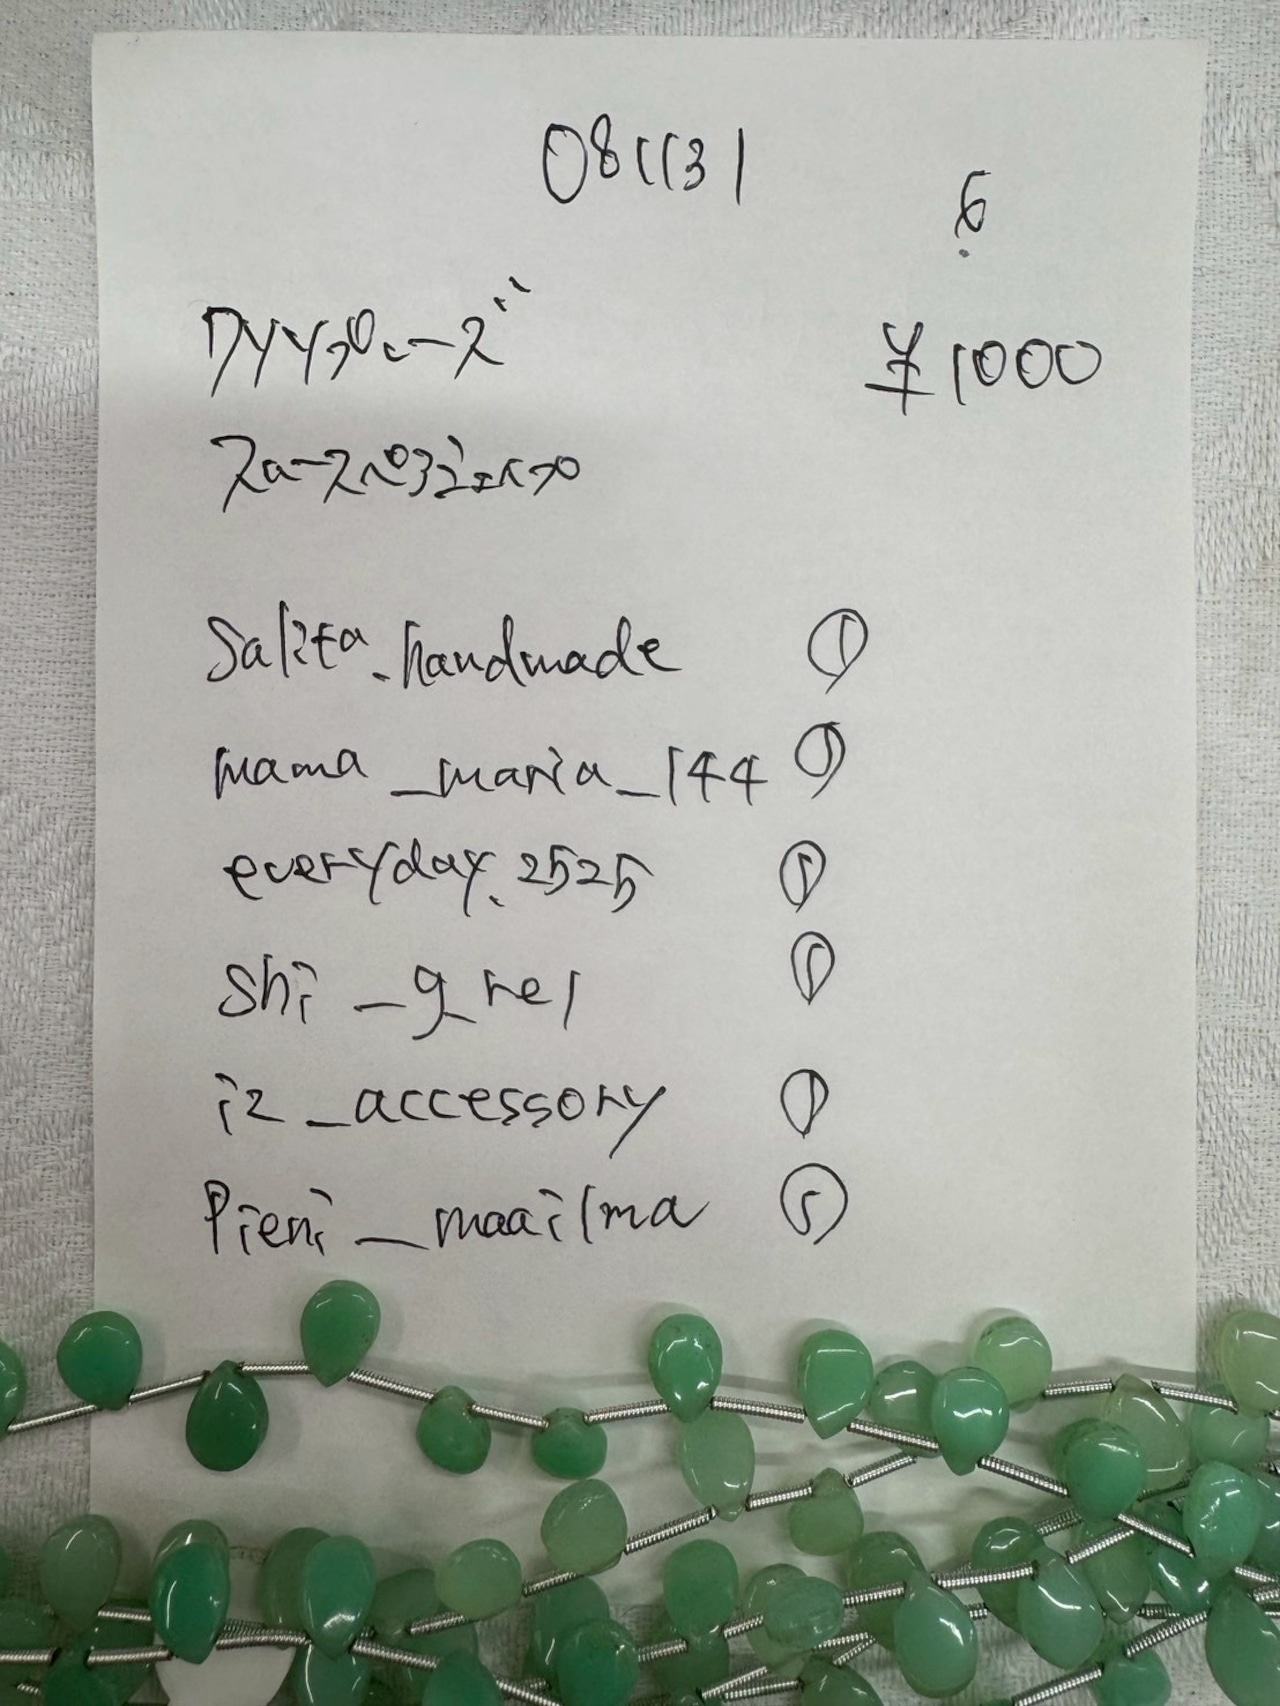 081131
6
クリソプレーズ
¥1000
スムースペアシェイプ
salita_handmade ①
mama_maria_144 ①
everyday.2525 ①
shi_g_rel ①
iz_accessory ①
pieni_maailma ①